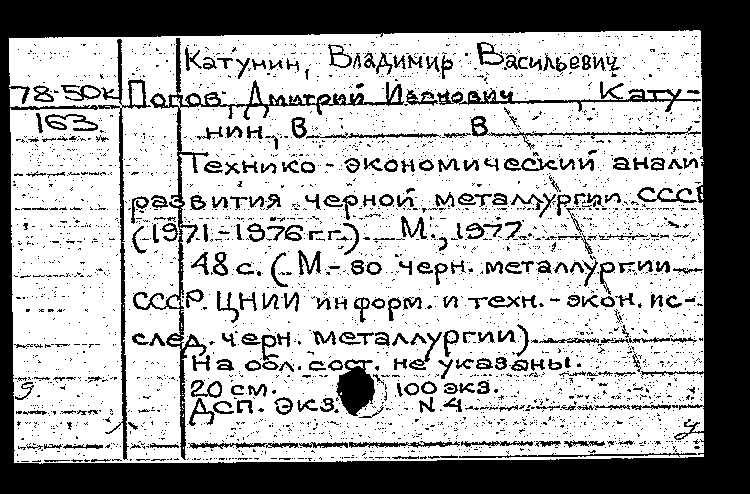 Катунин, Владимир Васильевич
78-50к Попов, Дмитрий Иванович , Кату-
163 нин, В В
Технико-экономический анали
развития черной металлургии СССР
(1971-1976гг.). М., 1977.
48 с. (М-во черн. металлургии
СССР. ЦНИИ информ. и техн.-экон. ис-
след. черн. металлургии)
На обл. сост. не указаны.
20 см. 100 экз.
ДСП. Экз. N 4
у